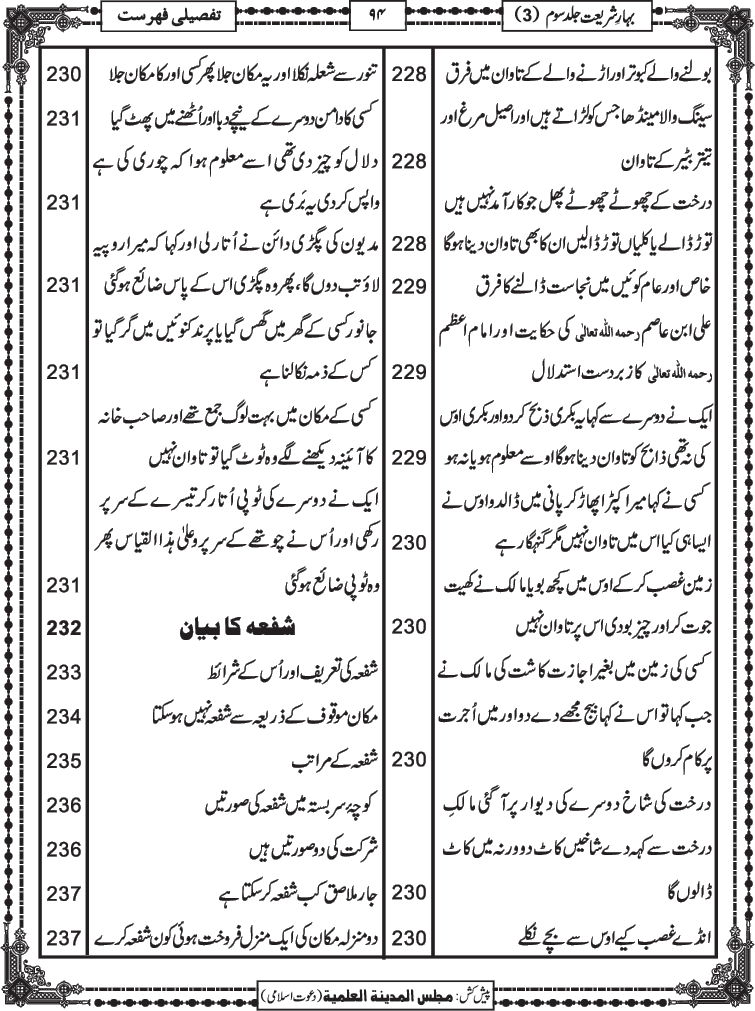 بہارِشریعت جلد سوم (3)
۹۴
تفصیلی فہرست
بولنے والے کبوتر اور اڑنے والے کے تاوان میں فرق 228
سینگ والا مینڈھا جس کو لڑاتے ہیں اور اصیل مرغ اور
تیتر بٹیر کے تاوان 228
درخت کے چھوٹے چھوٹے پھل جو کارآمد نہیں ہیں
توڑ ڈالے یا کلیاں توڑ ڈالیں ان کا بھی تاوان دینا ہوگا 228
خاص اور عام کوئیں میں نجاست ڈالنے کا فرق 229
علی ابن عاصم رحمه الله تعالى کی حکایت اور امام اعظم
رحمه الله تعالى کا زبردست استدلال 229
ایک نے دوسرے سے کہا یہ بکری ذبح کردو اور بکری اوس
کی نہ تھی ذابح کو تاوان دینا ہوگا اوسے معلوم ہو یا نہ ہو 229
کسی نے کہا میرا کپڑا پھاڑ کر پانی میں ڈالدو اوس نے
ایسا ہی کیا اس میں تاوان نہیں مگر گنہگار ہے 230
زمین غصب کرکے اوس میں کچھ بویا مالک نے کھیت
جوت کر اور چیز بودی اس پر تاوان نہیں 230
کسی کی زمین میں بغیر اجازت کاشت کی مالک نے
جب کہا تو اس نے کہا بیج مجھے دے دو اور میں اُجرت
پر کام کروں گا 230
درخت کی شاخ دوسرے کی دیوار پر آگئی مالکِ
درخت سے کہہ دے شاخیں کاٹ دو ورنہ میں کاٹ
ڈالوں گا 230
انڈے غصب کیے اوس سے بچے نکلے 230
تنور سے شعلہ نکلا اور یہ مکان جلا پھر کسی اور کا مکان جلا 230
کسی کا دامن دوسرے کے نیچے دبا اور اُٹھنے میں پھٹ گیا 231
دلال کو چیز دی تھی اسے معلوم ہوا کہ چوری کی ہے
واپس کردی یہ بَری ہے 231
مدیون کی پگڑی دائن نے اُتار لی اور کہا کہ میرا روپیہ
لاؤ تب دوں گا، پھر وہ پگڑی اس کے پاس ضائع ہوگئی 231
جانور کسی کے گھر میں گھس گیا یا پرند کنوئیں میں گر گیا تو
کس کے ذمہ نکالنا ہے 231
کسی کے مکان میں بہت لوگ جمع تھے اور صاحب خانہ
کا آئینہ دیکھنے لگے وہ ٹوٹ گیا تو تاوان نہیں 231
ایک نے دوسرے کی ٹوپی اُتار کر تیسرے کے سر پر
رکھی اور اُس نے چوتھے کے سر پر وعلیٰ ہذا القیاس پھر
وہ ٹوپی ضائع ہوگئی 231
شفعہ کا بیان 232
شفعہ کی تعریف اور اُس کے شرائط 233
مکان موقوف کے ذریعہ سے شفعہ نہیں ہوسکتا 234
شفعہ کے مراتب 235
کوچۂ سربستہ میں شفعہ کی صورتیں 236
شرکت کی دو صورتیں ہیں 236
جار ملاصق کب شفعہ کرسکتا ہے 237
دو منزلہ مکان کی ایک منزل فروخت ہوئی کون شفعہ کرے 237
پیش کش: مجلس المدينة العلمية (دعوت اسلامی)